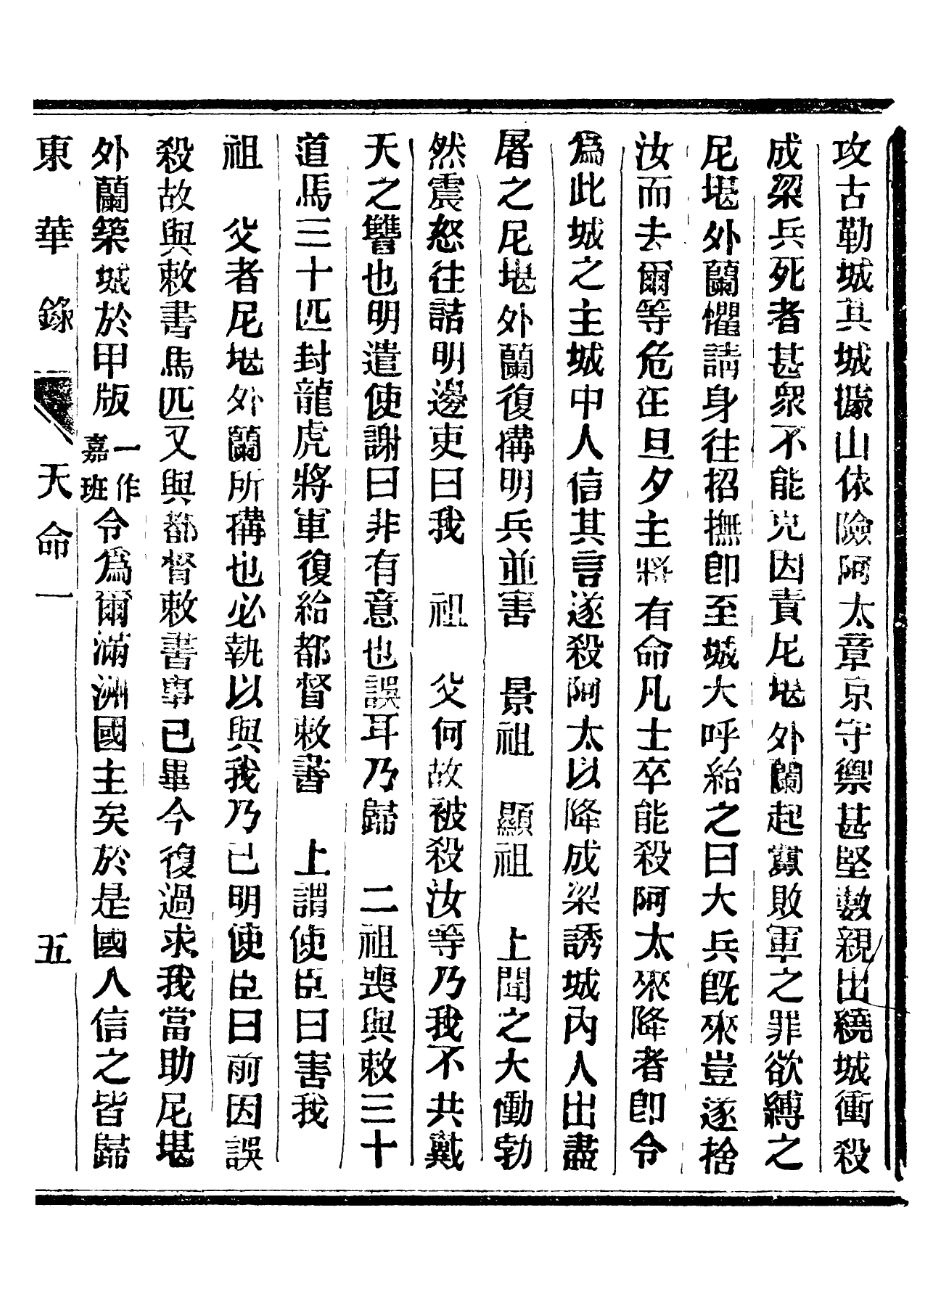 攻古勒城其城據山依險阿太章京守禦甚堅數親出繞城衝殺
成梁兵死者甚衆不能克因責尼堪外蘭起釁敗軍之罪欲縛之
尼堪外蘭懼請身往招撫卽至城大呼紿之曰大兵旣來豈遂捨
汝而去爾等危在旦夕主將有命凡士卒能殺阿太來降者卽令
爲此城之主城中人信其言遂殺阿太以降成梁誘城內人出盡
屠之尼堪外蘭復搆明兵並害　景祖　顯祖　上聞之大慟勃
然震怒往詰明邊吏曰我　祖　父何故被殺汝等乃我不共戴
天之讐也明遣使謝曰非有意也誤耳乃歸　二祖喪與敕三十
道馬三十匹封龍虎將軍復給都督敕書　上謂使臣曰害我
祖　父者尼堪外蘭所搆也必執以與我乃已明使臣曰前因誤
殺故與敕書馬匹又與都督敕書事已畢今復過求我當助尼堪
外蘭築城於甲版一作嘉班令爲爾滿洲國主矣於是國人信之皆歸
東華錄　天命一　五